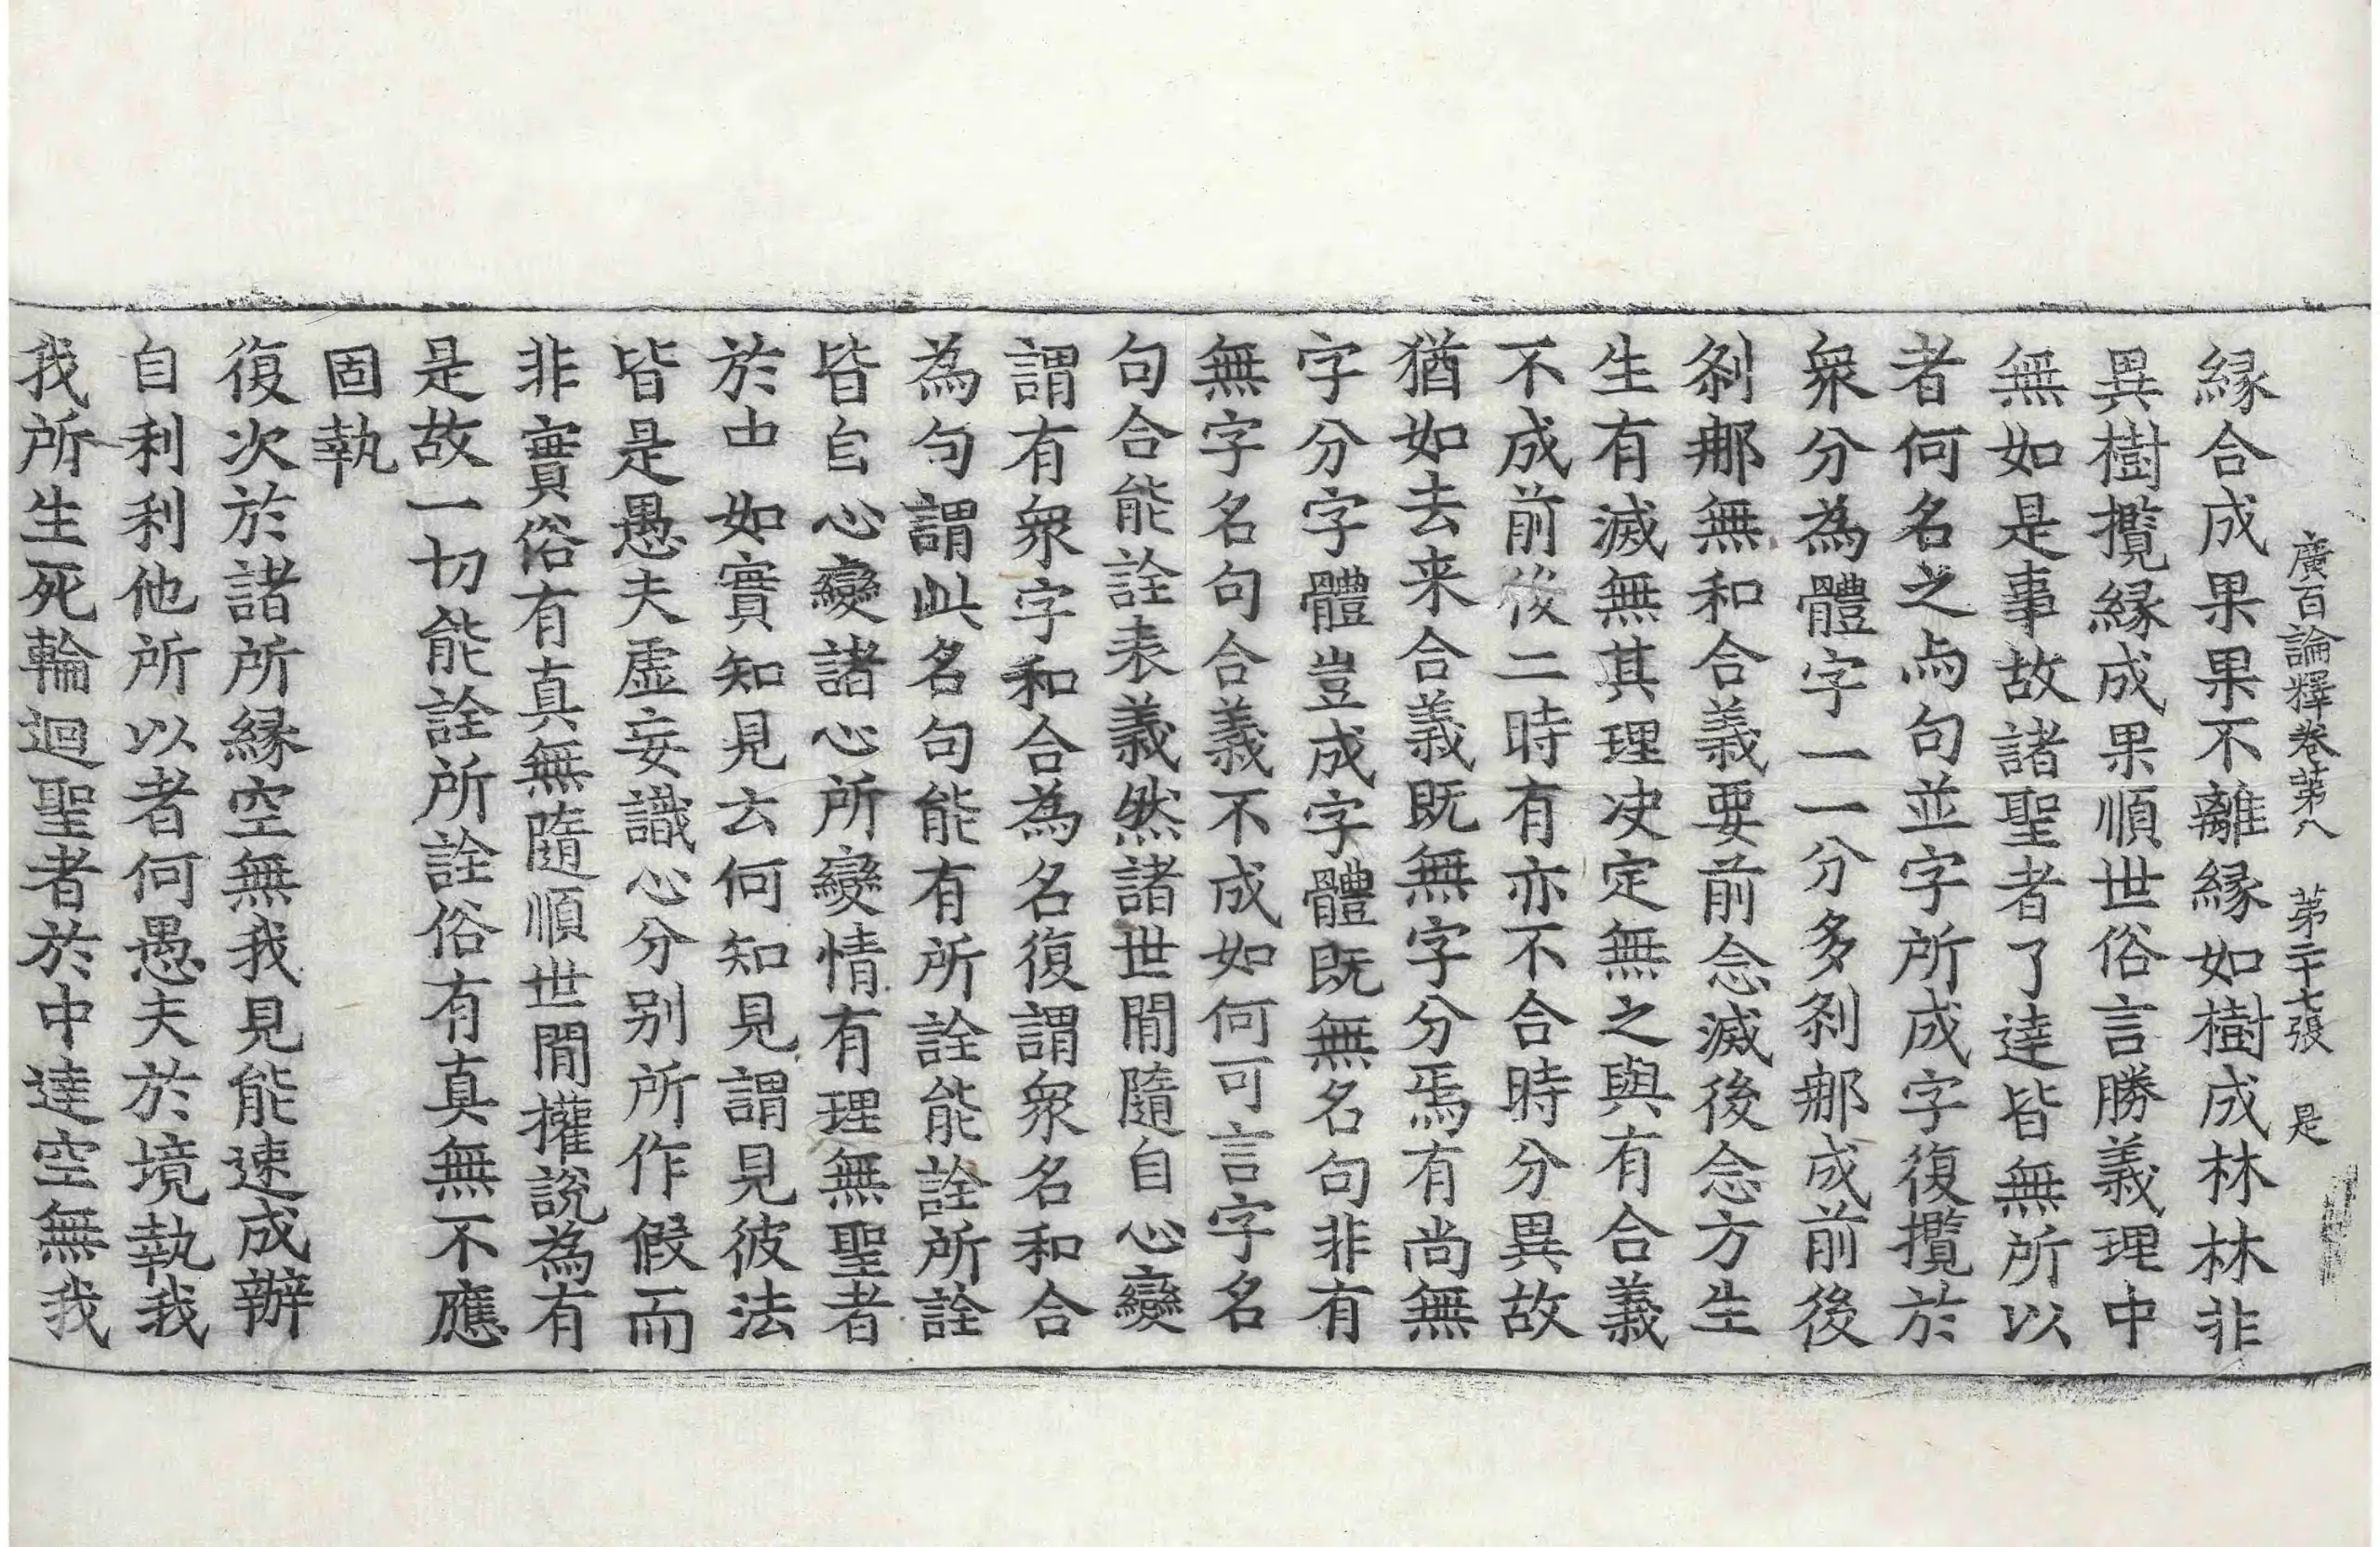 廣百論釋卷第八　第二十七張　是
緣合成果果不離緣如樹成林林非
異樹攬緣成果順世俗言勝義理中
無如是事故諸聖者了達皆無所以
者何名之與句並字所成字復攬於
衆分為體字一一分多刹那成前後
刹那無和合義要前念滅後念方生
生有滅無其理决定無之與有合義
不成前後二時有亦不合時分異故
猶如去来合義既無字分焉有尚無
字分字體豈成字體既無名句非有
無字名句合義不成如何可言字名
句合能詮表義然諸世閒隨自心變
謂有衆字和合為名復謂衆名和合
為句謂此名句能有所詮能詮所詮
皆自心變諸心所變情有理無聖者
於中如實知見云何知見謂見彼法
皆是愚夫虛妄識心分别所作假而
非實俗有真無隨順世閒權說為有
是故一切能詮所詮俗有真無不應
固執
復次於諸所緣空無我見能速成辦
自利利他所以者何愚夫於境執我
我所生死輪迴聖者於中達空無我